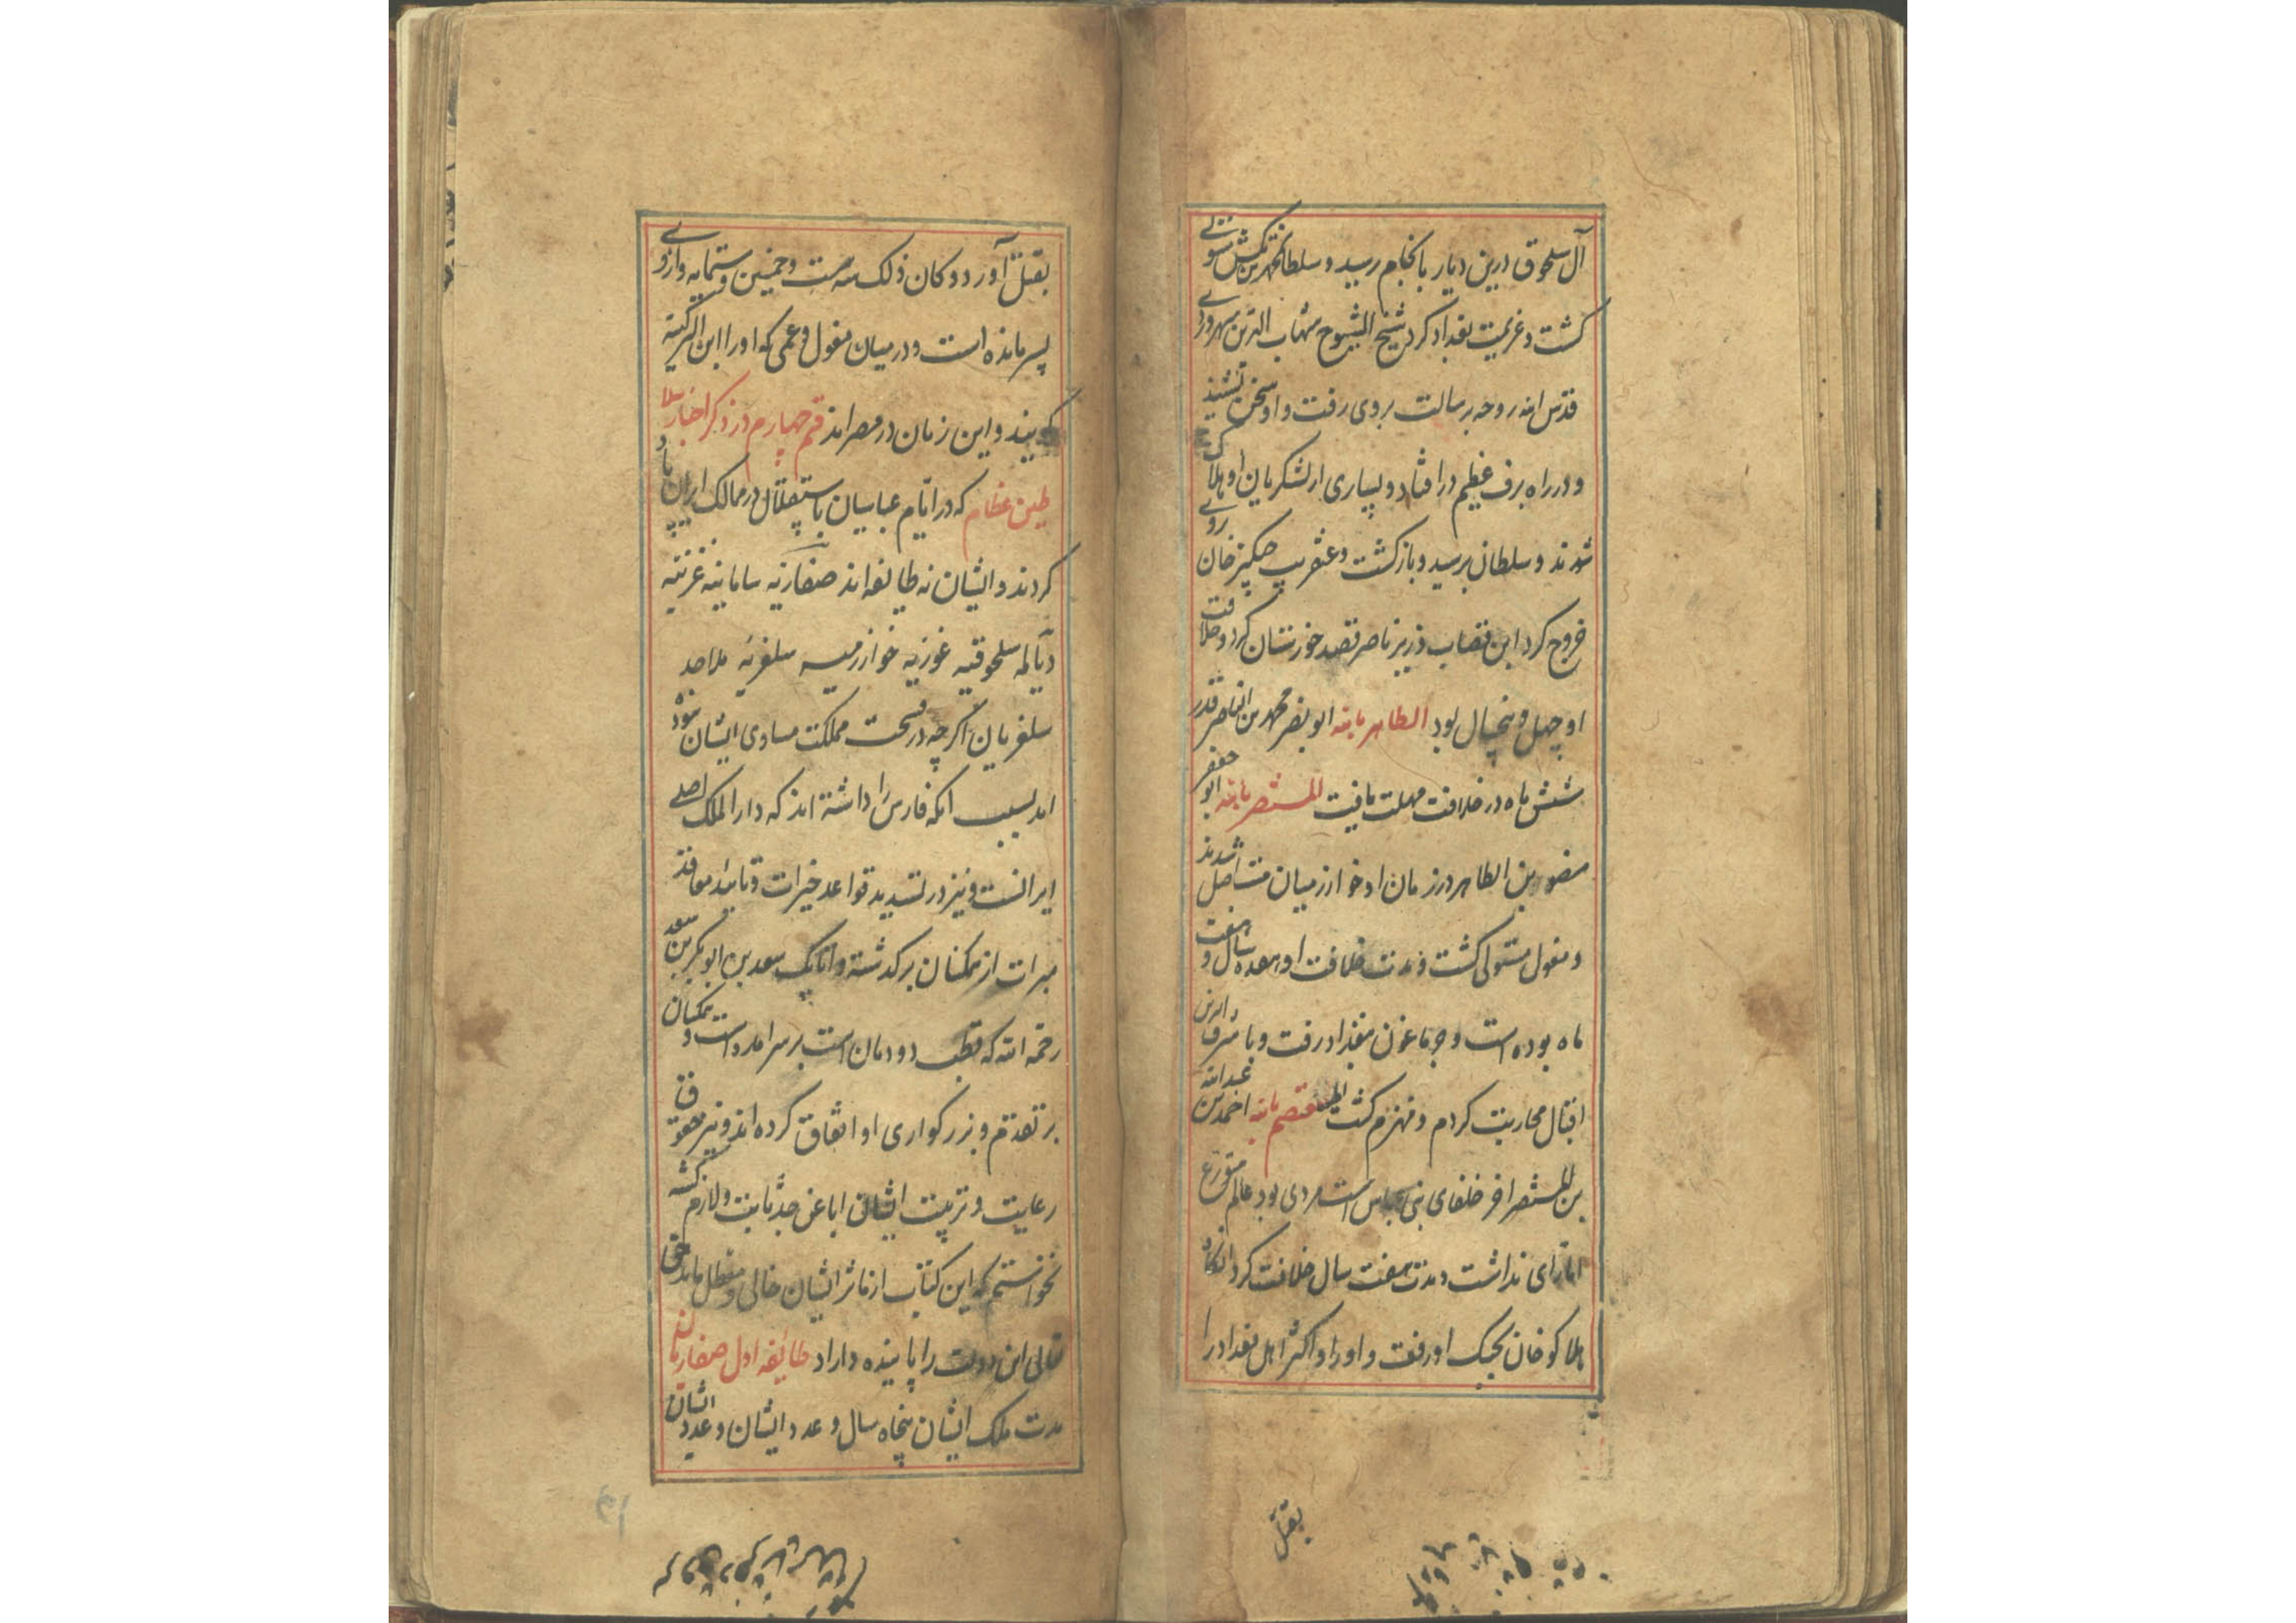 آل سلجوق درین دیار بانجام رسید و سلطان محمد بن تکش مستولی
کشت و عزیمت بغداد کرد شیخ الشیوخ شهاب الدین سهروردی
قدس الله روحه برسالت بروی رفت و او سخن نشنید
و در راه برف عظیم در افتاد و بسیاری از لشکریان او هلاک
شدند و سلطان برسید و بازکشت و عنقریب چنکیز خان
خروج کرد ابن قصاب وزیر ناصر قصد خوزستان کرد و خلافت
او چهل و پنجسال بود الظاهر بالله ابو نصر محمد بن الناصر قدر
شش ماه در خلافت مهلت یافت المستنصر بالله ابو جعفر
منصور بن الظاهر در زمان او خوارزمیان مستاصل شدند
و مغول مستولی کشت و مدت خلافت او هفده سال و هفت
ماه بوده است و جرماغون ببغداد رفت و با شرف الدین
اقبال محاربت کردم و منهزم کشت المستعصم بالله احمد بن عبدالله
بن المستنصر اخر خلفای بنی عباس است مردی بود عالم متورع
اما رای نداشت و مدت هفت سال خلافت کرد انکاه
هلاکو خان بجنک او رفت و او را و اکثر اهل بغداد را
بقتل
بقتل آورد و کان ذلک سه ست و خمسین و ستمایه و از وی
پسر مانده است و در میان مغول و عمی که او را ابن الترکیه
کویند و این زمان در مصر اند قسم چهارم در ذکر اخبار سلا
طین عظام که در ایام عباسیان باستقلال در ممالک ایران پاد
کردند و ایشان نه طایفه اند صفاریه سامانیه غزنیه
دیالمه سلجوقیه غوریه خوارزمیه سلغریه ملاحد
سلغریان اکرچه در فسحت مملکت مساوی ایشان نبوده
اند بسبب انکه فارس را داشته اند که دار الملک اصلی
ایرانست و نیز در تشدید قواعد خیرات و تایید معاقد
مبرات از همکنان برکذشته و اتابک سعد بن ابو بکر بن سعد
رحمه الله که قطب دودمان است بر سر امده است و همکنان
بر تقدم و بزرکواری او اتفاق کرده اند و نیز حقوق
رعایت و تربیت ایشان ابا عن جد ثابت و لازم کشته
نخواستم که این کتاب از ماثر ایشان خالی و معطل ماند حق
تعالی این دولت را پاینده داراد طایفه اول صفاریان
مدت ملک ایشان پنجاه سال و عدد ایشان و عدد ایشان